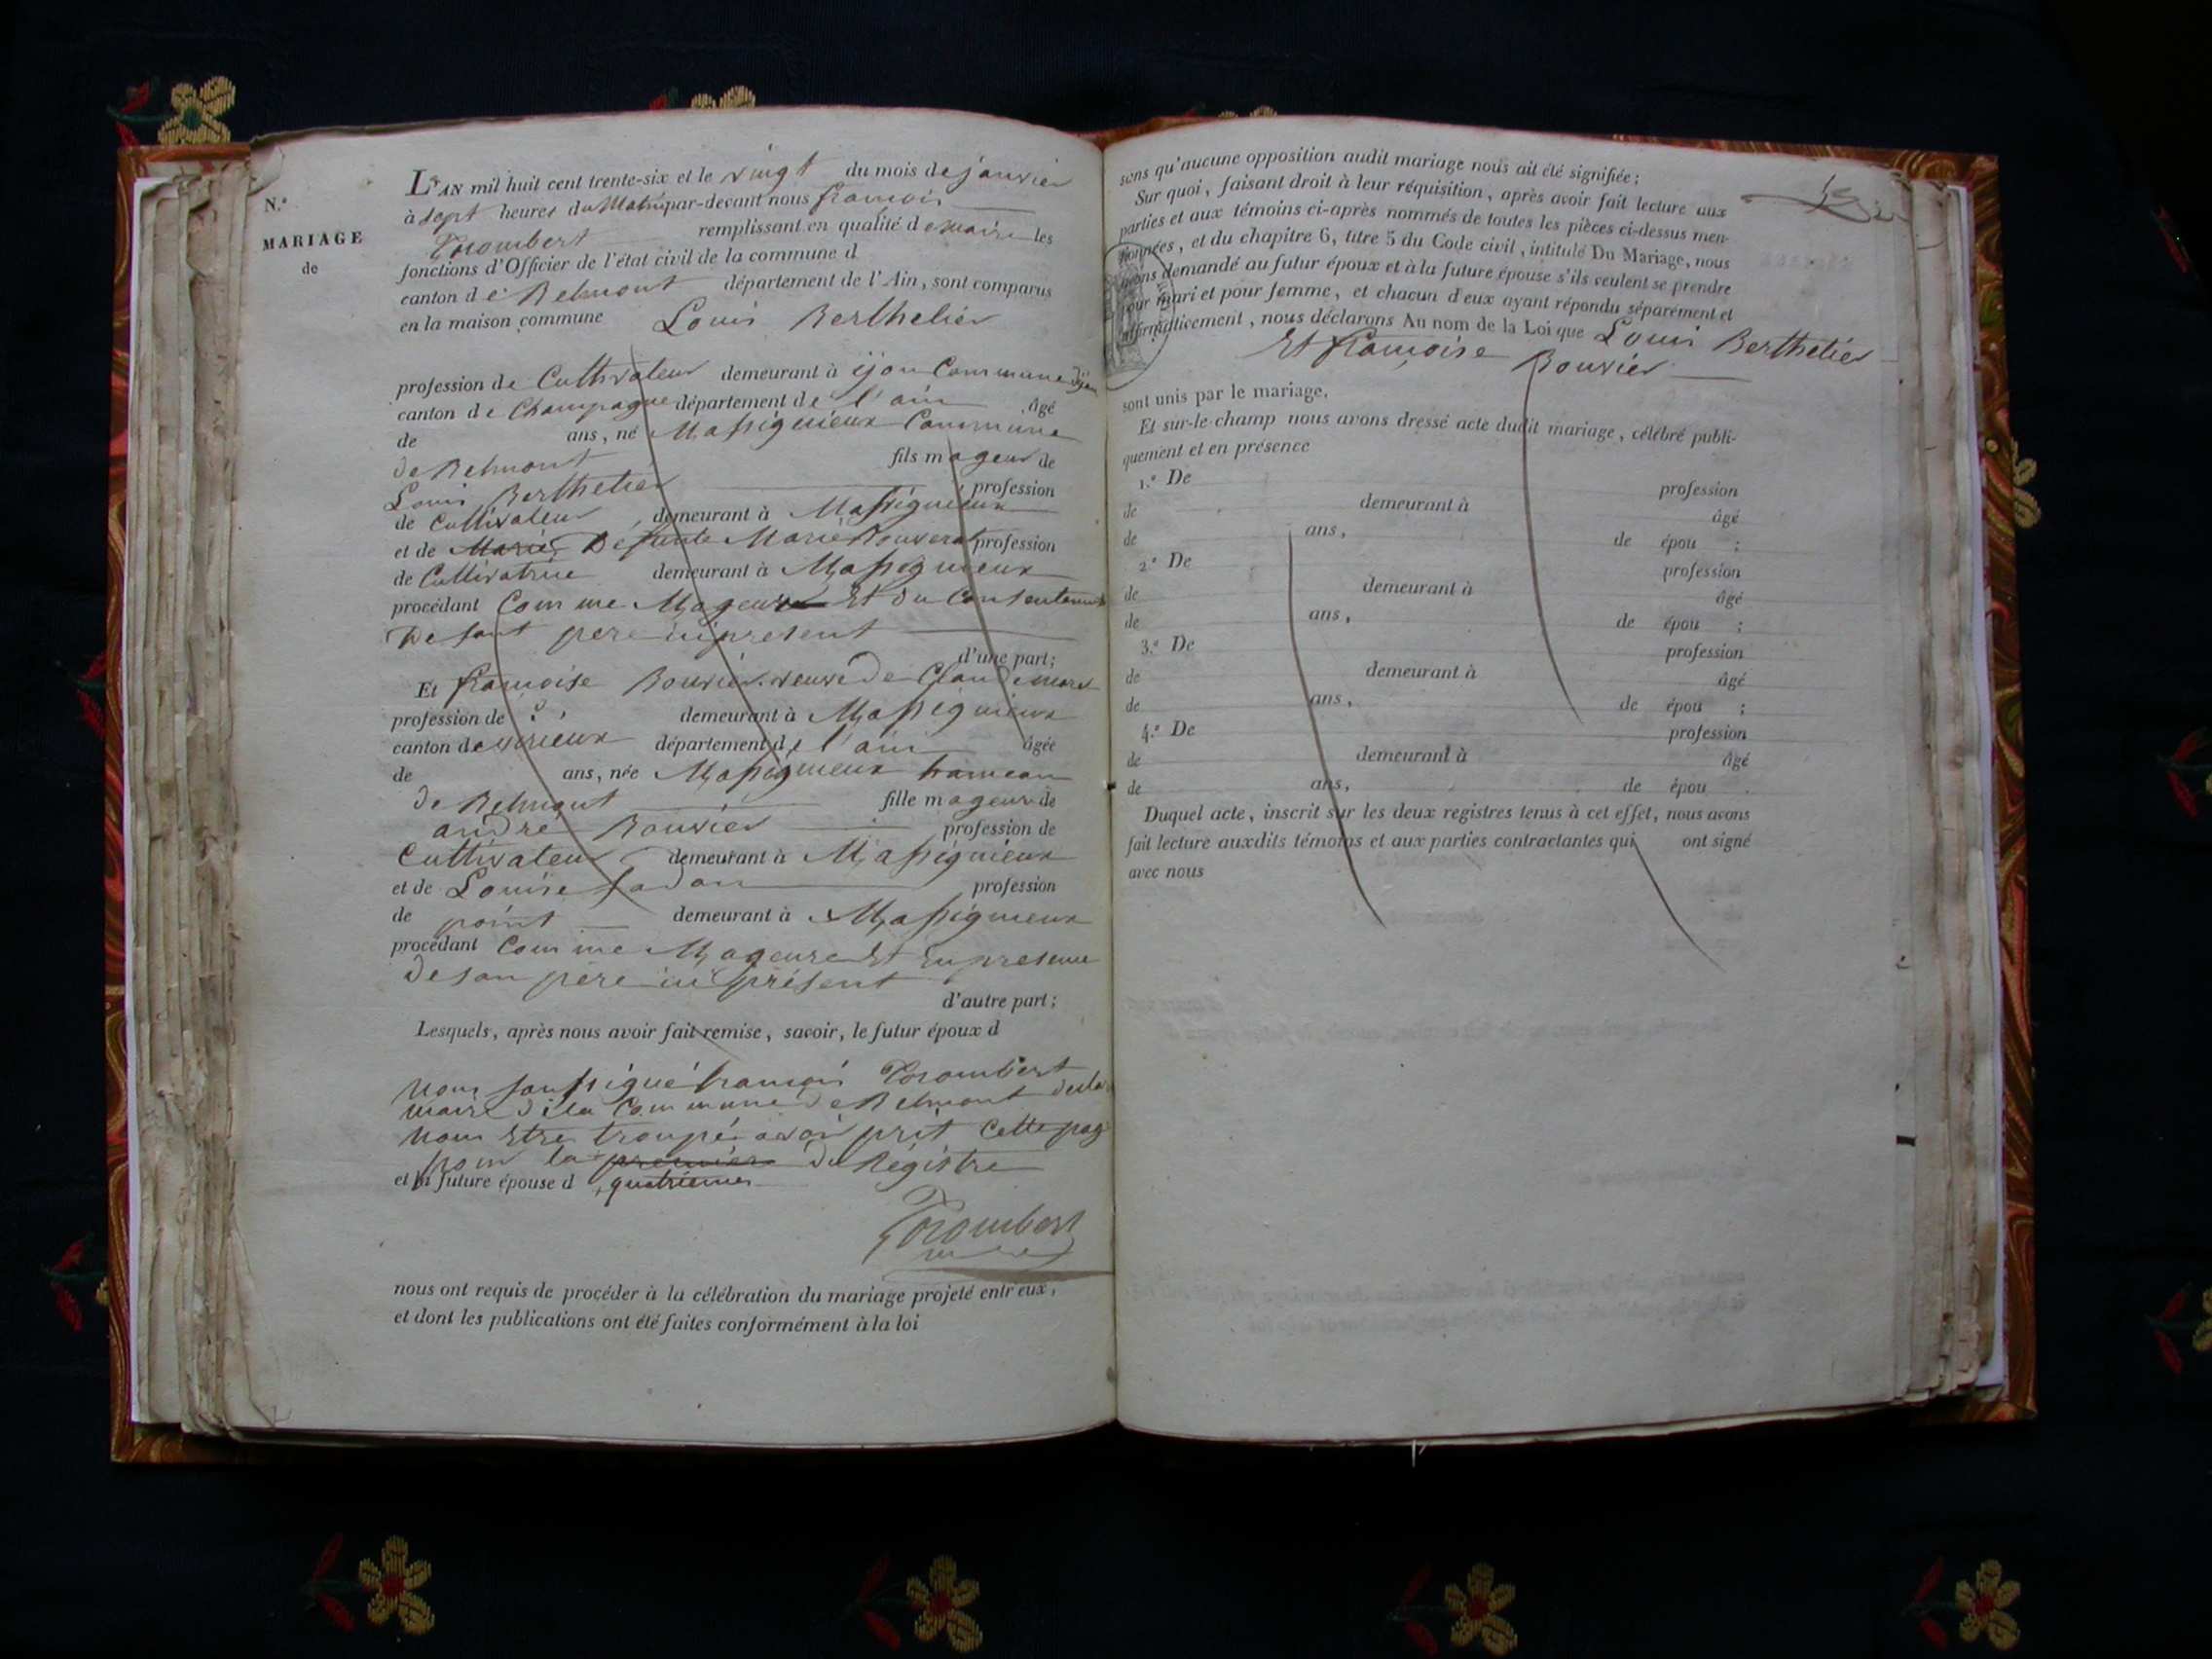 N.o
MARIAGE
de
L'AN mil huit cent trente-six et le vingt du mois de janvier
à sept heures du Matin par-devant nous françois
Trombert remplissant en qualité de maire les
fonctions d'Officier de l'état civil de la commune d
canton de Belmont département de l'Ain, sont comparus
en la maison commune Louis Berthelier
profession de Cultivateur demeurant à ijon Commune dijon
canton de Champagne département de l'ain , âgé
de ans, né Massignieux Commune
de Belmont fils mageur de
Louis Berthelier profession
de Cultivateur , demeurant à Massignieux
et de Marie Defunte Marie profession
de Cultivatrice demeurant à Massignieux
procédant Comme Mageur Et du Consentement
De sont pere ici present
d'une part;
Et françoise Bouvier veuve de Claude
profession de demeurant à Massignieux
canton de virieux département de l'ain âgée
de ans, née Massignieux hameau
de Belmont fille mageure de
andré Bouvier profession de
Cultivateur demeurant à Massignieux
et de Louise profession
de point demeurant à Massignieux
procédant Comme Mageure Et En presence
de son père ici présent
d'autre part;
Lesquels, après nous avoir fait remise, savoir, le futur époux d
Nous soussigné francois Trombert
maire de la Commune de Belmont
Nous Etre troupé avoir prit Cette pag
pour la premiere du Régistre
et la future épouse d quatrieme
Trombert
maire
nous ont requis de procéder à la célébration du mariage projeté entr'eux,
et dont les publications ont été faites conformément à la loi
sans qu'aucune opposition audit mariage nous ait été signifiée;
Sur quoi, faisant droit à leur réquisition, après avoir fait lecture aux
parties et aux témoins ci-après nommés de toutes les pièces ci-dessus men-
tionnées, et du chapitre 6, titre 5 du Code civil, intitulé Du Mariage, nous
avons demandé au futur époux et à la future épouse s'ils veulent se prendre
pour mari et pour femme, et chacun d'eux ayant répondu séparément et
affirmativement, nous déclarons Au nom de la Loi que Louis Berthelier
Et françoise Bouvier
sont unis par le mariage.
Et sur-le-champ nous avons dressé acte dudit mariage, célébré publi-
quement et en présence
1.o De profession
de demeurant à âgé
de ans, de épou ;
2.o De profession
de demeurant à âgé
de ans, de épou ;
3.o De profession
de demeurant à âgé
de ans, de épou ;
4.o De profession
de demeurant à âgé
de ans, de épou .
Duquel acte, inscrit sur les deux registres tenus à cet effet, nous avons
fait lecture auxdits témoins et aux parties contractantes qui ont signé
avec nous